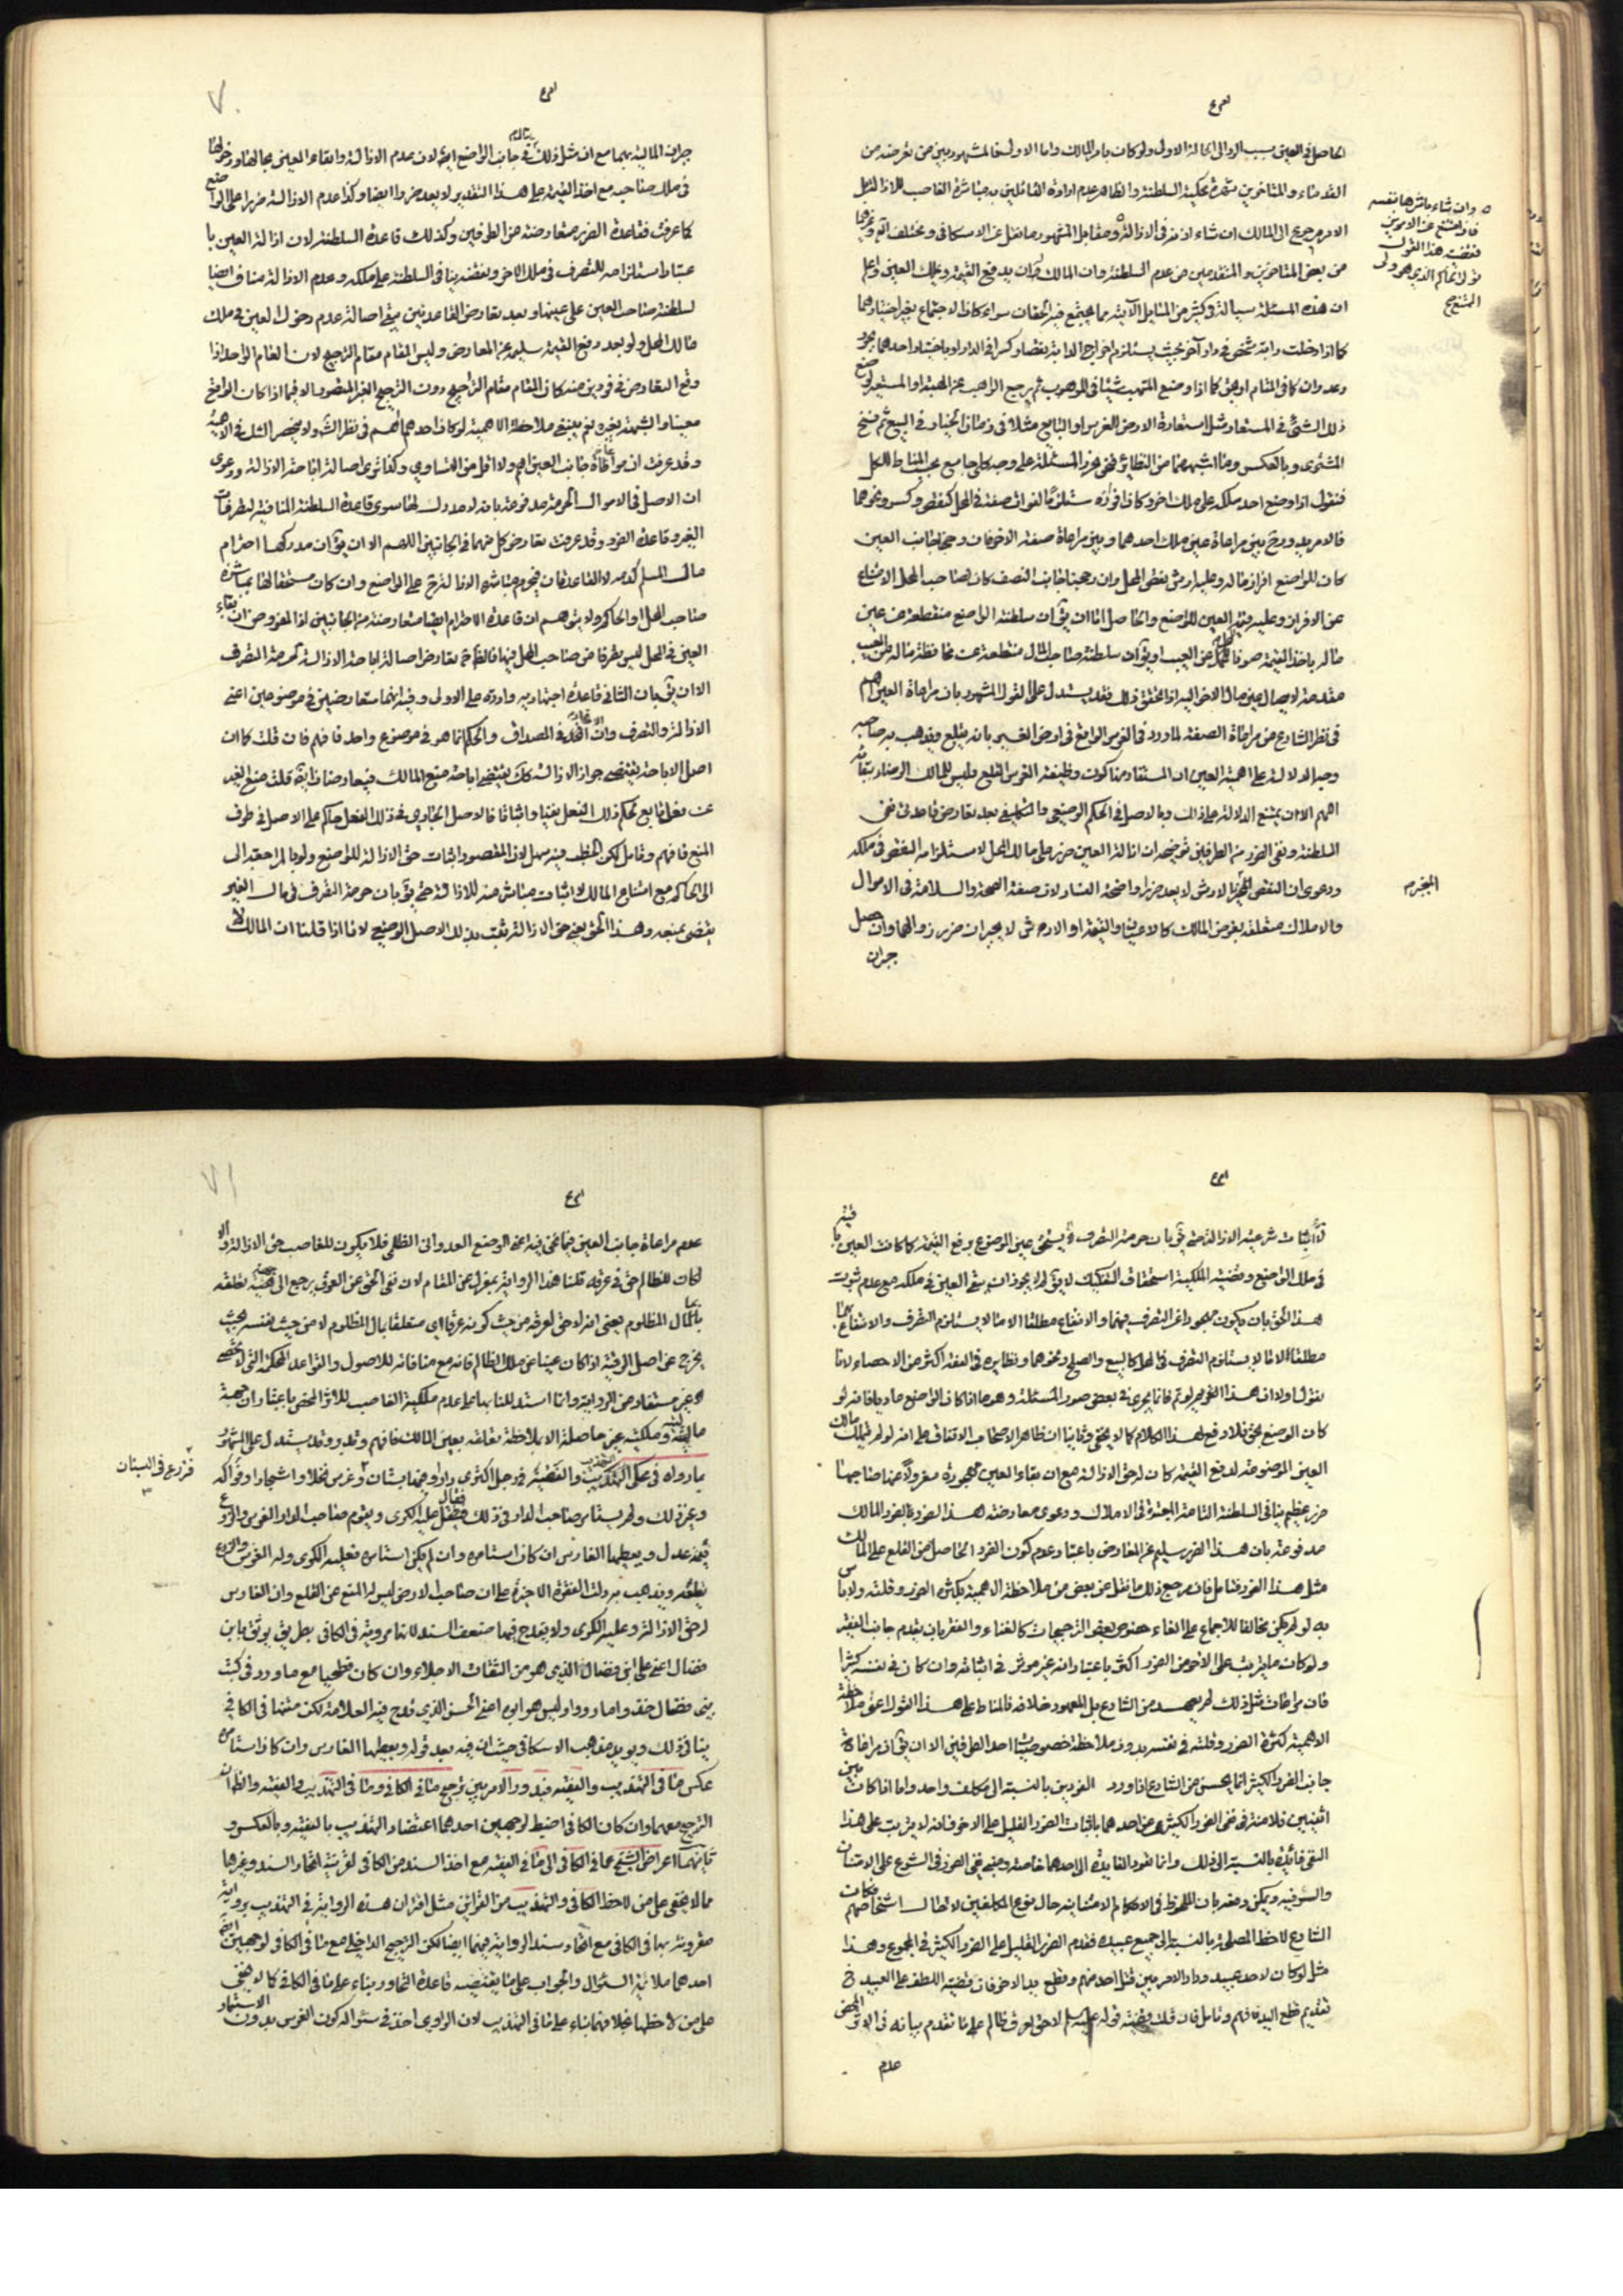 الحاصل في العين بسبب الرد الى الحالة الاولى ولو كان بامر المالك واما الاول فالمشهور بين من تعرضه من
القدماء والمتاخرين شهرة محكية السلطنة والظاهر عدم ارادة القائلين به مباشرة الغاصب للازالة بل
الامر مرجع الى المالك ان شاء اذنه في الازالة ومقابل المشهور ما نقل عن الاسكافي ومختلف آية وغيرهما
وان شاء باشرها بنفسه
فان امتنع عن الامرين
من بعض المتاخرين والمتقدمين من عدم السلطنة وان المالك بدفع القيمة ويملك العين واعلم
ان هذه المسئلة سيالة في كثير من المسايل الآتية مما يجتمع فيه الحقان سواء كان الاجتماع بغير اختيارهما
كما اذا دخلت دابة شخص في دار آخر بحيث يستلزم اخراج الدابة نقضا وكسرا في الدار او باختيار احدهما
ذلك الشئ في المستعار ومثل استعارة الارض للغرس او البايع مثلا في زمان الخيار في البيع ثم فسخ
المشتري وبالعكس وما اشبههما من النظائر فنحن نحرر المسئلة على وجه كلي جامع بحسب المناط للكل
فنقول اذا وضع احد ملكه على ملك اخر وكان افرازه مستلزما لفوات صفة في المحل كنقص وكسر ونحوهما
فالامر يدور بين مراعاة عين ملك احدهما وبين مراعاة صفة الاخر فان رجحنا جانب العين
كان للواضع افراز ماله وعليه ارش نقص المحل وان رجحنا جانب النصف كان لصاحب المحل الامتناع
عن الافراز وعليه قيمة العين للواضع والحاصل اما ان يق ان سلطنة الواضع منقطعة عن عين
ماله باخذ القيمة صونا للمحل عن العيب او يق ان سلطنة صاحب المال منقطعة عن محافظة ماله عن العيب
مقدمة لايصال عين مال الاخر اليه اذا تحقق ذلك فقد يستدل على القول المشهور بان مراعاة العين اهم
في نظر الشارع من مراعاة الصفة لما ورد في الغرس الواقع في ارض الغير بانه يقلع ويذهب به صاحبه
وجه الدلالة على اهمية العين ان المستفاد منها كون وظيفة الغرس القلع وليس للمالك الرضاء ببقائه
اللهم الا ان يمنع الدلالة على ذلك وبالاصل في الحكم الوضعي والتكليفي بعد تعارض قاعدتي نفي
السلطنة ونفي الضرر من الطرفين توضيحه ان ازالة العين ضرر على مالك المحل لاستلزامه النقص في ملكه
ودعوى ان النقص المنجبر بالارش لا يعد ضررا واضحة الفساد لان صفة الصحة والسلامة في الاموال
والاملاك متعلقة بغرض المالك كالاعيان والقيمة او الارش لا يجبران ضرر زوالهما وان حصل
جبران
جبران المالية بهما مع ان مثل ذلك في جانب الواضع ايض لان عدم الازالة وابقاء العين بحالها ودخولها
في ملك صاحبه مع اخذ القيمة على هذا التقدير لا يعد ضررا ايضا وكذا عدم الازالة ضررا على الواضع
كما عرفت فقاعدة الضرر متعارضة من الطرفين وكذلك قاعدة السلطنة لان ازالة العين با
عتبار استلزامه للتصرف في ملك الاخر ونقضه ينافي السلطنة على ملكه وعدم الازالة مناف ايضا
لسلطنة صاحب العين على عينها وبعد تعارض القاعدتين يبقى اصالة عدم دخول العين في ملك
مالك المحل ولو بعد دفع القيمة سليمة عن المعارض وليس المقام مقام الترجيح لان المقام الواحد اذا
وقع التعارض في فردين منه كان المقام مقام التراجيح دون الترجيح الغير المتصور الا فيما اذا كان الواقع
معينا والشبهة بغيره نعم ينبغي ملاحظة الاهمية لو كان احدهما اهم في نظر الش ولا ينحصر الشك في الاهمية
وقد عرفت ان مراعاة جانب العين اهم ولا اقل من التساوي وكذا ترى اصالة اباحة الازالة ودعوى
ان الاصل في الاموال الحرمة مدفوعة بانه لا مدرك لها سوى قاعدة السلطنة المنافية لتطرفات
الغير وقاعدة الضرر وقد عرفت تعارض كل منهما في الجانبين اللهم الا ان يق ان مدركها احترام
مال المسلم كدمه لا القاعدتان فيحرم مباشرة الازالة ح على الواضع وان كان مستحقا لها بمباشرة
صاحب المحل او الحاكم ولا يتوهم ان قاعدة الاحترام ايضا متعارضة من الجانبين اذ المفروض ان بقاء
العين في المحل ليس بطرفا من صاحب المحل فيها فالظاهر تعارض اصالة اباحة الازالة لحرمة التصرف
الا ان يق بان الثاني قاعدة اجتهادية واردة على الاول وفيه انهما متعارضين في موضوعين اعني
الازالة والتصرف وان اتحدا في المصداق والحكم انما هو في موضوع واحد فافهم فان قلت كما ان
اصل الاباحة يقتضي جواز الازالة كك يقتضي اباحة منع المالك فيتعارضان ايض قلت منع الغير
عن فعل تابع لحكم ذلك الفعل نفيا واثباتا فالاصل الجاري في ذلك الفعل حاكم على الاصل في طرف
المنع فافهم وتامل لكن الخطب فيه سهل لان المقصود اثبات حق الازالة للواضع ولو بالمراجعة الى
الى الحاكم مع امتناع المالك لا اثبات مباشرته للازالة حتى يق بان حرمة التصرف في مال الغير
يقتضي بمنعه وهذا الحق يعني حق الازالة يثبت بذلك الاصل الوضعي لانا اذا قلنا ان المالك لا
لاثبات شرعية الازالة حتى يق بان حرمة التصرف لا يستحق عين الموضوع ودفع القيمة كما كانت العين
في ملك الواضع وقضية الملكية استحقاق التفكيك لا يق لم لا يجوز ان يبقى العين في ملكه مع عدم ثبوت
هذا الحق بان يكون محجورا عن التصرف فيهما والانتفاع مطلقا الا ما لا يستلزم التصرف والانتفاع
مطلقا الا ما لا يستلزم التصرف في المحل كالبيع والصلح ونحوهما ونظايره في الفقه اكثر من الاحصاء لانا
نقول اولا ان هذا النحو لو تم فانما يجري في بعض صور المسئلة وهو ما اذا كان الواضع عاديا فانه لو
كان الوضع بحق فلا دفع لهذا الكلام كما لا يخفى وثانيا ان ظاهر الاصحاب الاتفاق على انه لو لم يتملك مالك
العين الموضوعة لدفع القيمة كان له حق الازالة مع ان بقاء العين محجورة معزولا عنها صاحبها
ضرر عظيم ينافي السلطنة التامة المجعولة في الاملاك ودعوى معارضة هذا الضرر بالضرر المالك
مدفوعة بان هذا الضرر سليم عن المعارض باعتبار عدم كون الضرر الحاصل من القلع على المالك
مثل هذا الضرر فتامل فان مرجع ذلك ما نقل عن بعض من ملاحظة الاهمية بكثرة الضرر وقلته ولا باس
به لو لم يكن مخالفا للاجماع على الغاء خصوص بعض الترجيحات كالغناء والفقر بان يقدم جانب الفقير
ولو كان ما يترتب على الاخر من الضرر اكثر باعتبار انه غير موثر في اثباته وان كان في نفسه كثيرا
فان مراعات مثل ذلك لم يعهد من الشارع بل المعهود خلافه فالمناط على هذا القول اعني ملاحظة
الاهمية كثرة الضرر وقلته في نفسه بدون ملاحظة خصوصيات احد الطرفين الا ان يق ان مراعاة
جانب الضرر الكثير انما يحسن من الشارع اذا ورد الضررين بالنسبة الى مكلف واحد واما اذا كان بين
اثنين فلا منة في نفي الضرر الكثير عن احدهما باثبات الضرر القليل على الاخر فانه لا يترتب على هذا
النفي فائدة بالنسبة الى ذلك وانما يعود الفايدة الى احدهما خاصة ومبنى نفي الضرر في الشرع على الامتنان
والسوقية ويمكن دفعه بان الملحوظ في الاحكام الامتنانية حال نوع المكلفين لا حال اشخاصهم فكان
الشارع لاحظ المصلحة بالنسبة الى جميع عبيده فقدم الضرر القليل على الضرر الكثير في المجموع وهذا
مثل لو كان لاحد عبيد ودار الامر بين قتل احد منهم وقطع يد الاخر فان قضية اللطف على العبيد ح
تقديم قطع اليد فافهم وتامل فان قلت قضية قوله عليه السلام لا حق لعرق ظالم على ما تقدم بيانه في الاثر المحض
عدم
عدم مراعاة جانب العين فيما نحن فيه اعني الوضع العدواني الظلمي فلا يكون للغاصب حق الازالة والا
لكان للظالم حق في عرقه قلنا هذا الرواية بمعزل عن المقام لان نفي الحق عن العرق يرجع الى حيثية تعلقه
بالمال المظلوم يعني انه لا حق لعرقه من حيث كونه عرقا اي متعلقا بمال المظلوم لا من حيث نفسه بحيث
يخرج عن اصل الرقبة اذا كان عينا عن ملك الظالم فانه مع منافاته للاصول والقواعد المحكمة التي لا تخصص
غير مستفاد من الرواية وانما استدللنا بها على عدم ملكية الغاصب للاثر المحض باعتبار ان جهة
ماليته وملكيته غير حاصلة الا بملاحظة تعلقه بعين المالك فافهم وتدبر وقد يستدل على المشهور
بما رواه في محكي التهذيب والفقيه في رجل اكترى دارا وفيها بستان وغرس نخلا واشجارا وفواكه
فزرع في البستان
وغير ذلك ولم يستامر صاحب الدار في ذلك فقال عليه الكرى ويقوم صاحب الدار الغرس والزرع
قيمة عدل ويعطيها الغارس ان كان استامره وان لم يكن استامره فعليه الكرى وله الغرس والزرع
يقلعه ويذهب به دلت الفقرة الاخيرة على ان صاحب الارض ليس له المنع عن القلع وان الغارس
له حق الازالة وعليه الكرى ولا يقدح فيها ضعف السند لانها مروية في الكافي بطريق موثق بابن
فضال اعني علي ابن فضال الذي هو من الثقات الاجلاء وان كان فطحيا مع ما ورد في كتب
بني فضال خذوا ما رووا وليس هو ابوه اعني الحسن الذي قدح فيه العلامة لكن متنها في الكافي
ينافي ذلك ويويد مذهب الاسكافي حيث ان فيه بعد قوله ويعطيها الغارس وان كان استامره
عكس ما في التهذيب والفقيه فيدور الامر بين ترجيح ما في الكافي وما في التهذيب والفقيه والظاهر ان
الترجيح معهما وان كان الكافي اضبط لوجهين احدهما اعتضاد التهذيب بالفقيه وبالعكس و
ثانيهما اعراض الشيخ عما في الكافي الى ما في الفقيه مع اخذ السند من الكافي لقرينة اتحاد السند وغيرها
مما لا يخفى على من لاحظ الكافي والتهذيب من القرائن مثل اقتران هذه الرواية في التهذيب برواية
مقرونة بها في الكافي مع اتحاد سند الرواية فيهما ايضا لكن الترجيح الداخلي مع ما في الكافي لوجهين ايض
احدهما ملائمة السئوال والجواب على ما يقتضيه قاعدة التحاور بناء على ما في الكافي كما لا يخفى
على من لاحظها بخلافهما بناء على ما في التهذيب لان الراوي اخذ في سئواله كون الغرس بدون الاستيمار